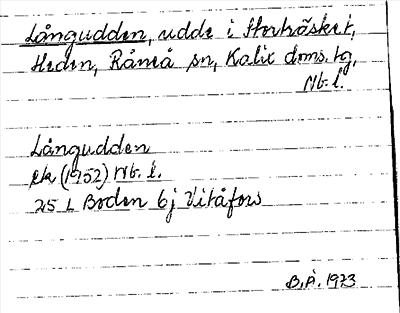 Långudden, udde i Storträsket,
Heden, Råneå sn, Kalix doms. tg,
Nb. l.
Långudden
ek (1952) Nb. l.
25 L Boden 6j Vitåfors
B.Å. 1973